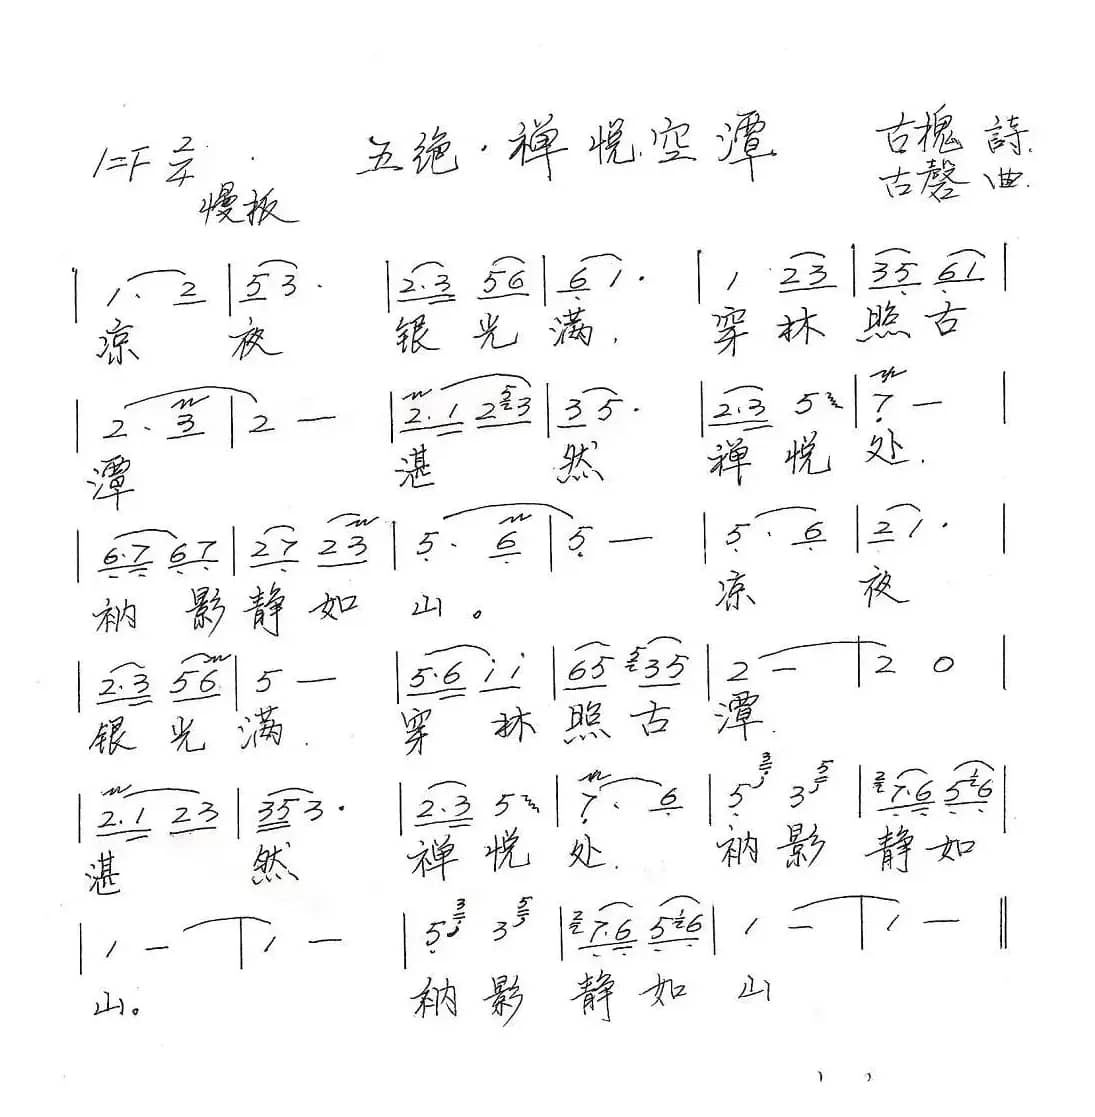 1=F 2/4 五绝·禅悦空潭 古槐 詩
慢板 古磬 曲
| 1· 2 | 5 3· | 2·3 56 | 6 1· | 1 23 | 35 61 |
凉 夜 银光满, 穿林照古
| 2· 3 | 2 — | 2·1 2 5 3 | 3 5· | 2·3 5 | 7 — |
潭 湛 然 禅悦处.
| 6·7 67 | 27 23 | 5· 6 | 5 — | 5· 6 | 2 1· |
衲影静如山。 凉 夜
| 2·3 56 | 5 — | 5·6 i i | 65 5 35 | 2 — | 2 0 |
银光满. 穿林照古潭.
| 2·1 23 | 35 3· | 2·3 5 | 7· 6 | 5 3 3 5 | 2 7·6 5 1 6 |
湛 然 禅悦处. 衲影静如
| 1 — | 1 — | 5 3 3 5 | 2 7·6 5 1 6 | 1 — | 1 — ‖
山。 衲影静如山